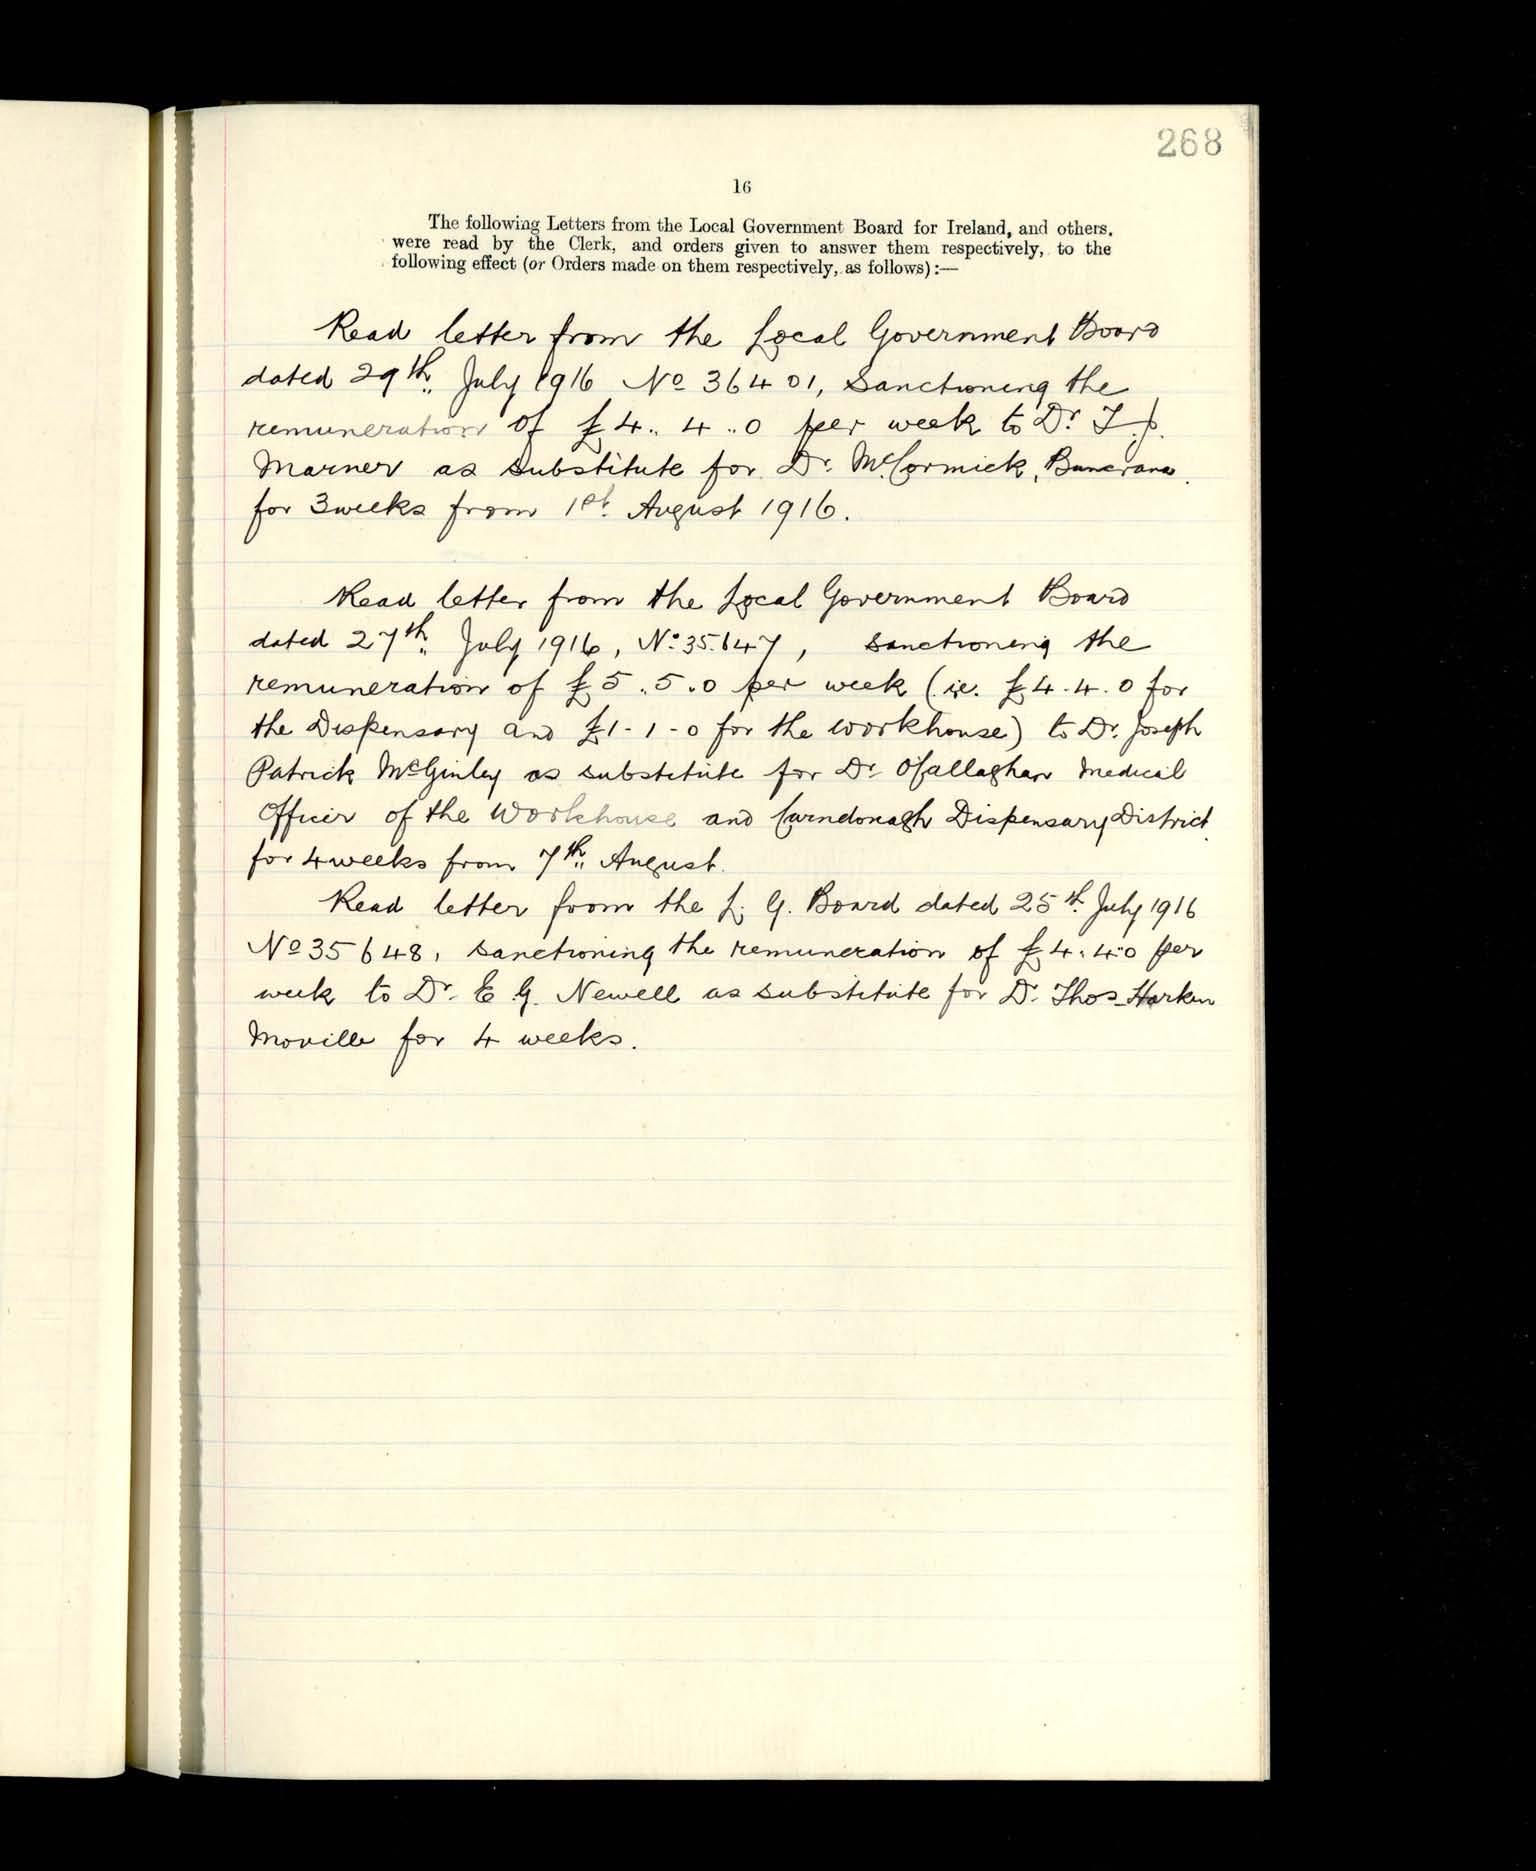 268
16
The following Letters from the Local Government Board for Ireland, and others,
were read by the Clerk, and orders given to answer them respectively, to the
following effect (or Orders made on them respectively, as follows):—
Read letter from the Local Government Board
dated 29th July 1916 No 36401, Sanctioning the
remuneration of £4..4..0 per week to Dr. T.J.
Marner as substitute for Dr. McCormick, Buncrana.
for 3 weeks from 1st August 1916.
Read letter from the Local Government Board
dated 27th July 1916, No. 35.647, sanctioning the
remuneration of £5.5.0 per week (ie. £4.4.0 for
the Dispensary and £1-1-0 for the workhouse) to Dr. Joseph
Patrick McGinley as substitute for Dr O'Callaghan Medical
Officer of the Workhouse and Carndonagh Dispensary District.
for 4 weeks from 7th August.
Read letter from the L. G. Board dated 25th July 1916
No 35648, sanctioning the remuneration of £4.4.0 per
week to Dr. E. G. Newell as substitute for Dr. Thos Harkin
Moville for 4 weeks.